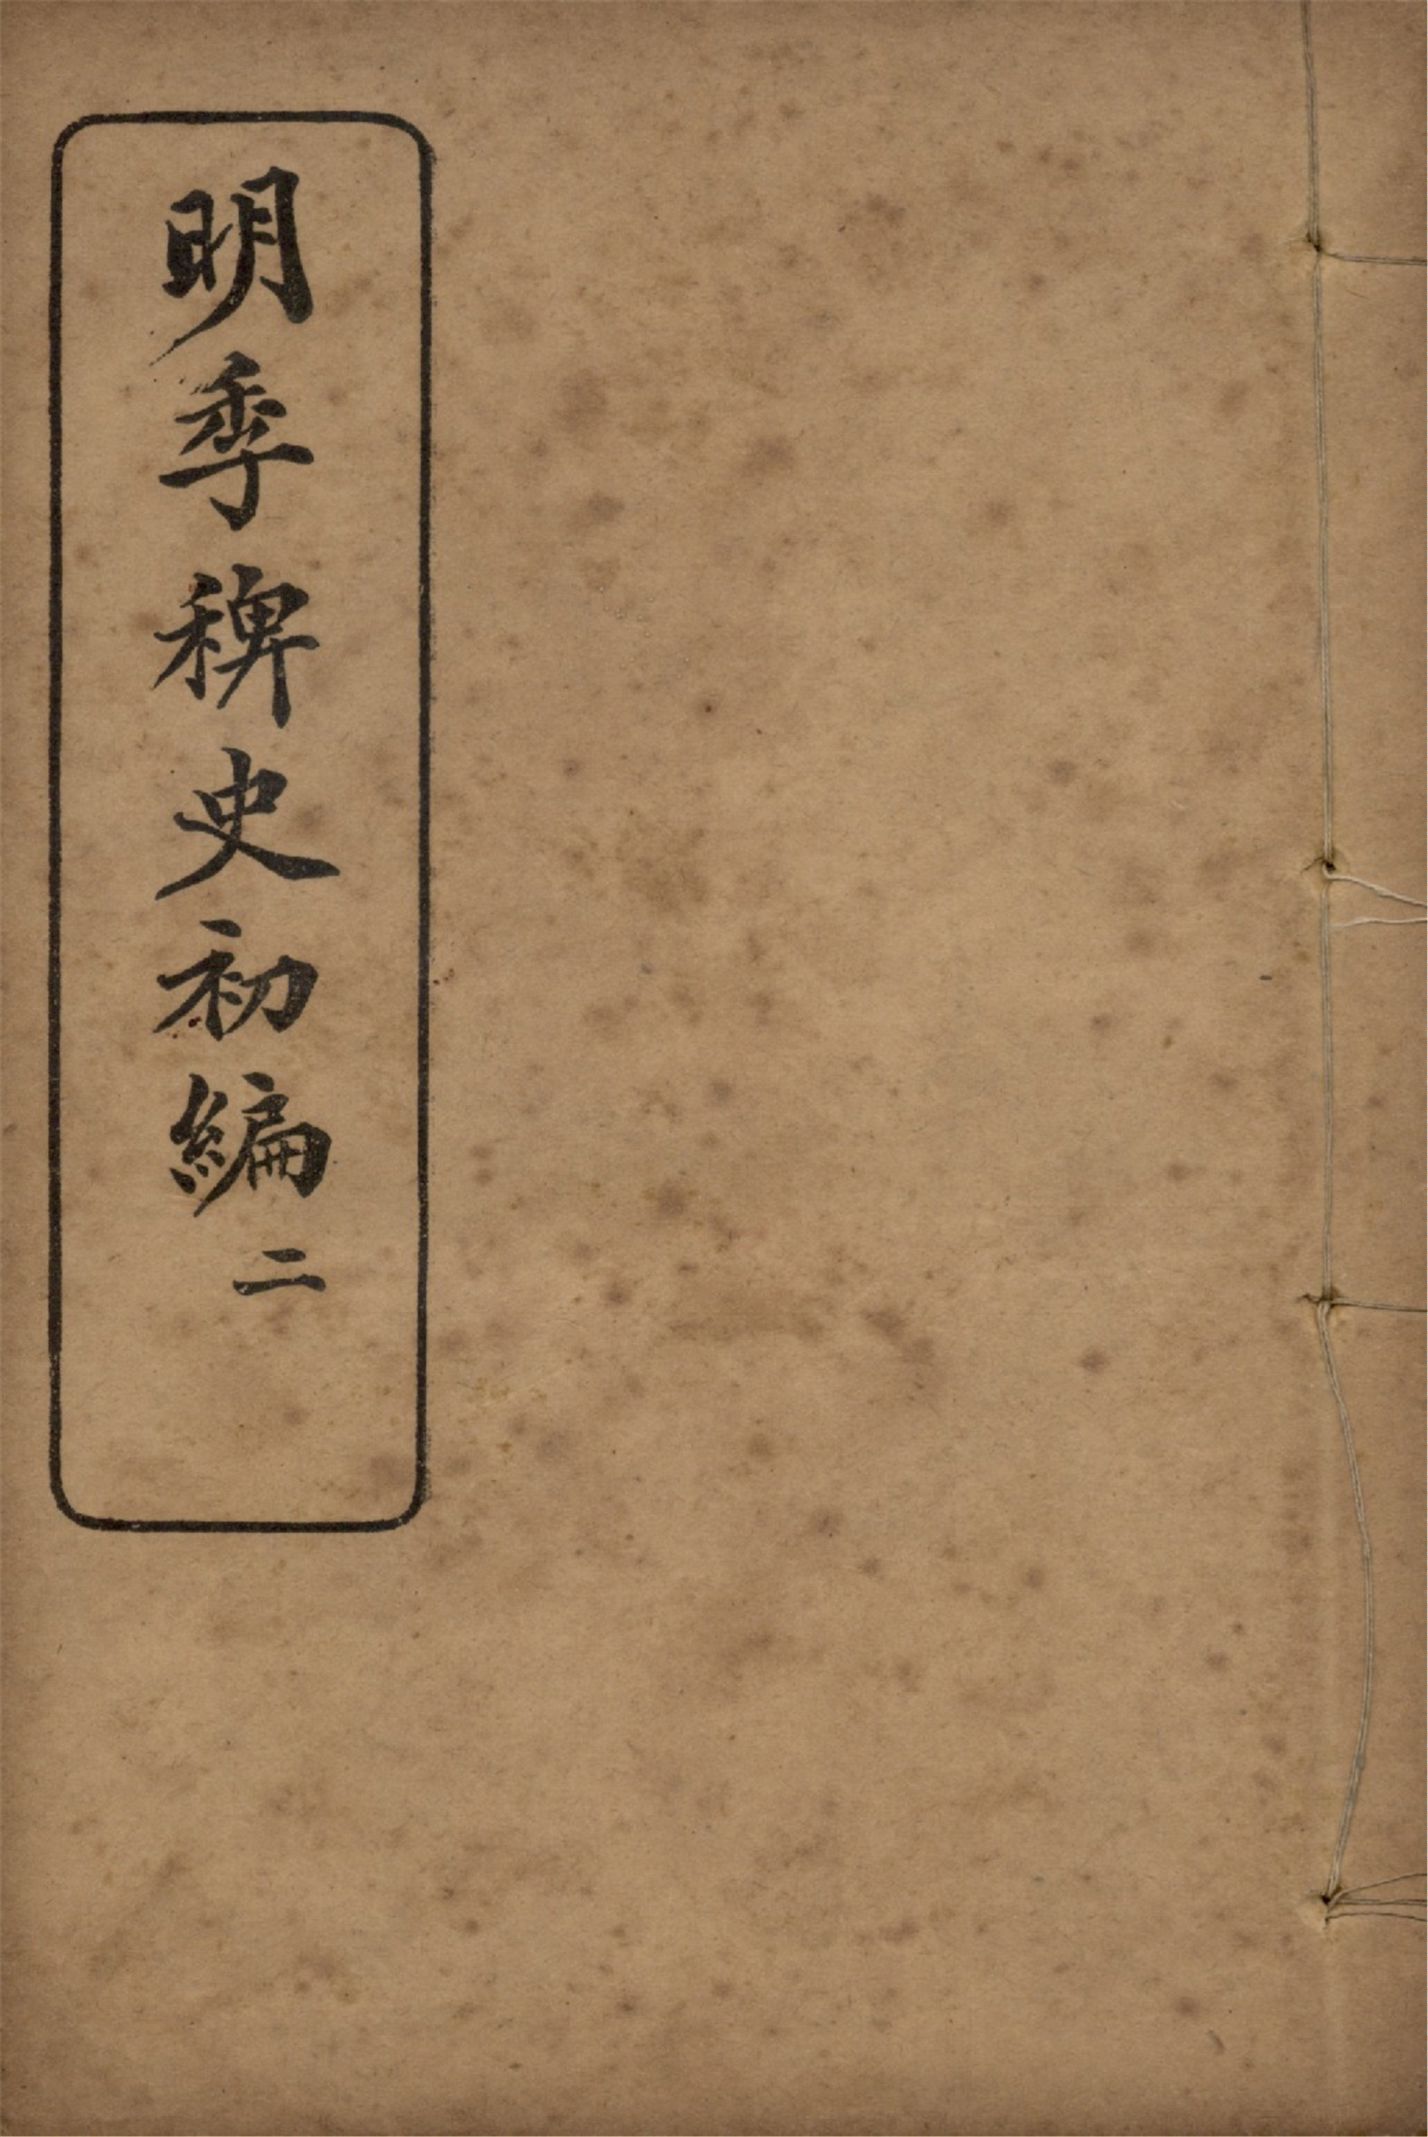 明季稗史初編二